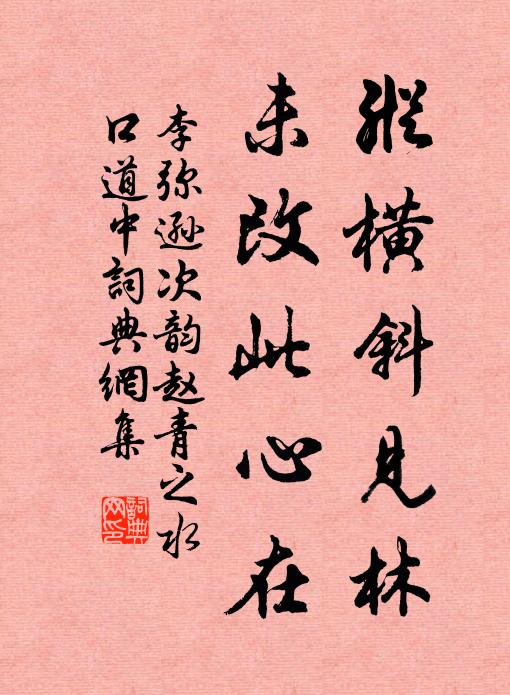 縱橫斜見林
未改此心在
李弥逊次韵赵青之水
口道中詞典網集
詞典網印